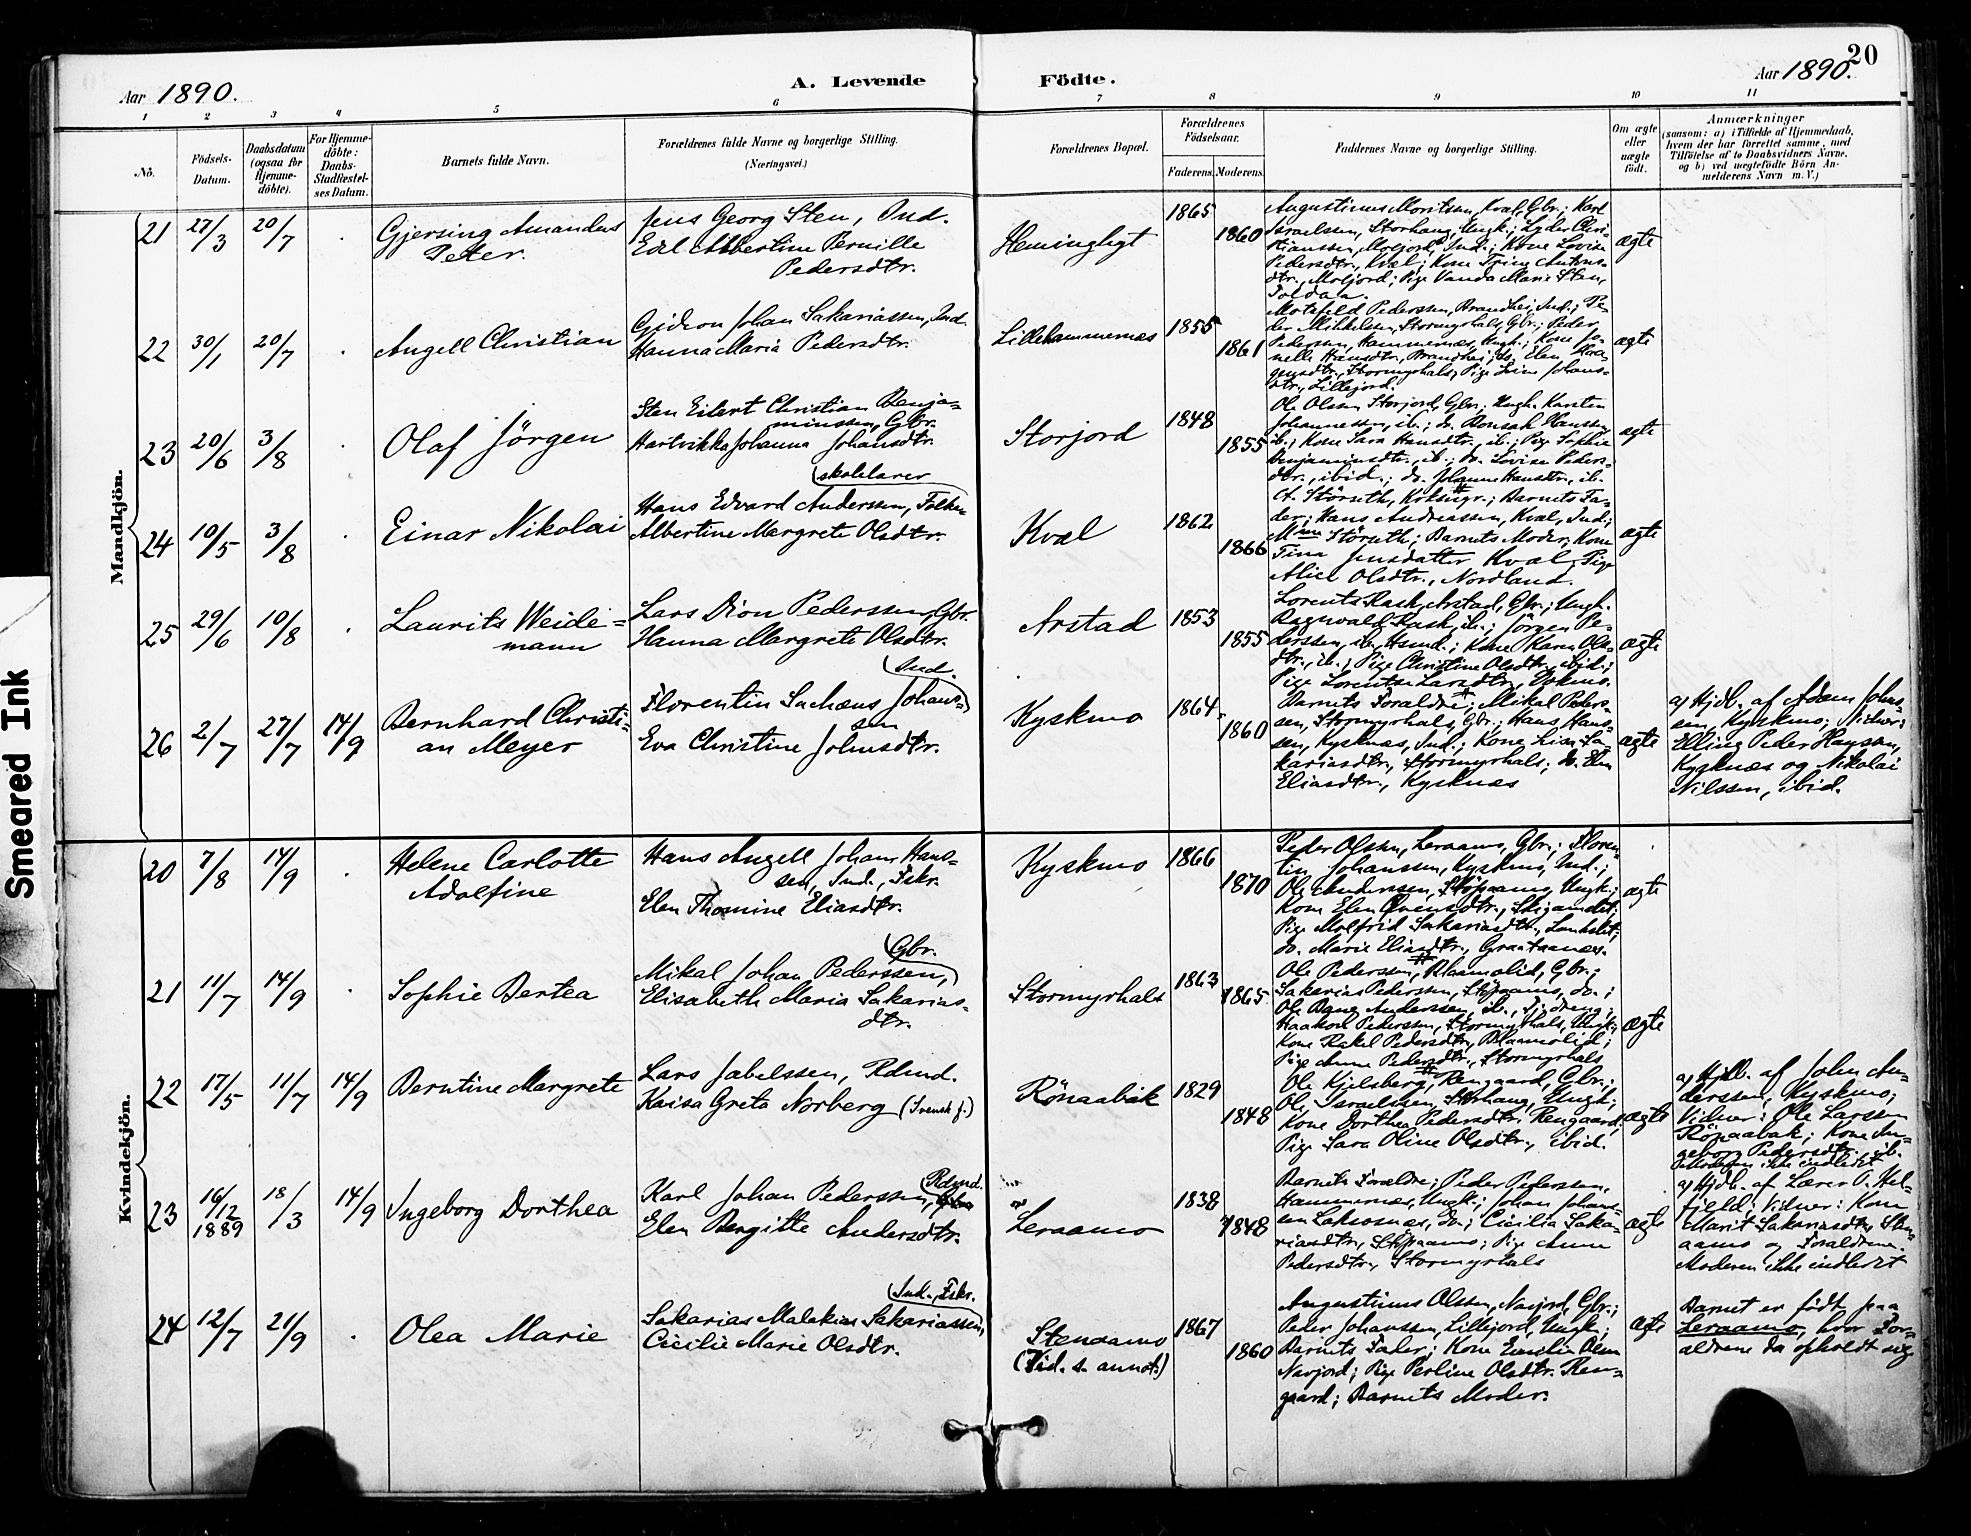 20
Aar 1890.
A. Levende
Födte.
Aar 1890.
1 2 3 4 5 6 7 8 9 10 11
No.
Födsels-
Datum.
Daabsdatum
(ogsaa for
Hjemme-
döbte).
For Hjemme-
döbte:
Daabs-
Stadfæstel-
ses Datum.
Barnets fulde Navn.
Forældrenes fulde Navne og borgerlige Stilling.
(Næringsvei.)
Forældrenes Bopæl.
Forældrenes
Födselsaar.
Faderens. Moderens.
Faddernes Navne og borgerlige Stilling.
Om ægte
eller
uægte
födt.
Anmærkninger
(saasom: a) i Tilfælde af Hjemmedaab,
hvem der har forrettet samme, med
Tilföielse af to Daabsvidners Navne,
og b) ved uægtefödte Börn An-
melderens Navn m. V.)
Mandkjön.
21 27/3 20/7
Gjersing Amandus
Peter.
Jens Georg Sten, Ind.
Edl Albertine Pernille
Pedersdtr.
Hemingligt
1865
1860
Augustinus Moritsen, Kval, Gbr.; Karl
Israelssen, Storhaug, Ungk.; Lyder Chri-
stianssen, Moljord, Ind.; Kone Lovise
Pedersdtr., Kval; Kone Trine Antons-
dtr., Moljord; Pige Vanda Marie Sten,
Toldaa.
ægte
22 30/1 20/7
Angell Christian
Gideon Johan Sakariassen, Ind.
Hanna Maria Pedersdtr.
Lillehammernæs
1855
1861
Motsfeld Pederssen, Brandhei, Ind.; Pe-
der Mikkelsen, Stormyrhals, Gbr.; Peder
Pedersen, Hammernæs, Ungk.; Kone Jo-
nelle Hansdtr., Brandhei; do. Elen
dtr., Stormyrhals; Pige Johans-
dtr., Lillejord.
ægte
23 20/6 3/8
Olaf Jörgen
Sten Eilert Christian Benja-
minssen, Gbr.
Hartvikka Johanna Johansdtr.
Storjord
1848
1855
Ole Olsen Storjord, Gbr.; Ungk. Karsten
Johannessen, ib.; do. Hanssen
ib.; Kone Sara Hansdtr., ib.; Pige Sophie
Benjaminsdtr., ib.; do. Lovise Peders-
dtr., ibid.; do. Johanne Hansdtr., ib.
ægte
24 10/5 3/8
Einar Nikolai
(skolelærer
Hans Edvard Anderssen, Folke-
Albertine Margrete Olsdtr.
Kval
1862
1866
O. Störseth, Kirksngr.; Barnets Fa-
der; Hans Andreassen, Kval, Ind.;
Mme Störseth; Barnets Moder; Kone
Tina Jensdatter Kval; Pige
Alice Olsdtr., Nordland.
ægte
25 29/6 10/8
Laurits Weide-
mann
Lars Dion Pederssen, Gbr.
Hanna Margrete Olsdtr.
Arstad
1853
1855
Lorents Rask, Arstad, Gbr.; Ungk.
Ragnvald Rask, ib.; Jörgen Pe-
derssen, ib., Husmd.; Kone Karen Ols-
dtr., ib.; Pige Christine Olsdtr., ibid.;
Pige Lorentse Larsdtr.,
ægte
26 2/7 27/7 14/9
Bernhard Christi-
an Meyer
(Ind.
Florentin Sachæus Johans-
sen
Eva Christine Johnsdtr.
Kyskmo
1864
1860
Barnets Forældre; Mikal Peders-
sen, Stormyrhals, Gbr.; Hans Hans-
sen, Kysknæs, Ind.; Kone Lisa Sa-
kariasdtr., Stormyrhals; do. Elen
Eliasdtr., Kysknæs
ægte
a) Hjdb. af Adam Johns-
sen, Kyskmo; Vidner:
Elling Peder Hanssen,
Kysknæs og Nikolai
Nilssen, ibid.
Kvindekjön.
20 7/8 14/9
Helene Carlotte
Adolfine
Hans Angell Johan Hans-
sen, Ind., Fskr.
Elen Thomine Eliasdtr.
Kyskmo
1866
1870
Peder Olsen, Leraamo, Gbr.; Floren-
tin Johanssen, Kyskmo, Ind.;
Ole Anderssen, Stöpaamo, Ungk.;
Kone Elen Svensdtr.,
Pige Molfrid Sakariasdtr.,
do. Marie Eliasdtr., Graataanæs.
ægte
21 11/7 14/9
Sophie Bertea
(Gbr.
Mikal Johan Pederssen,
Elisabeth Maria Sakarias-
dtr.
Stormyrhals
1863
1865
Ole Pederssen, Blaamolid, Gbr.;
Sakarias Pederssen, Stöpaamo, do.;
Ole Anderssen, ib., Tj.dreng;
Haakon Pederssen, Stormyrhals, Ungk.;
Kone Rakel Pedersdtr., Blaamolid;
Pige Anne Pedersdtr., Stormyrhals
ægte
22 17/5 11/7 14/9
Berntine Margrete
Lars Jabelssen, Rdmd.
Kaisa Greta Norberg (Svensk f.)
Rönaabak
1829
1848
Ole Kjelsberg, Rengaard, Gbr.;
Ole Israelssen, Storhaug, Ungk.;
Kone Dorthea Pedersdtr. Rengaard,
Pige Sara Oline Olsdtr., ibid.
ægte
a) Hjdb. af John An-
derssen, Kyskmo;
Vidner: Ole Larssen
Röpaabak; Kone In-
geborg Pedersdtr., ib.
Moderen ikke indledet
23 16/12 1889 18/3 14/9
Ingeborg Dorthea
(Rdmd.
Karl Johan Pederssen,
Elen Bergitte Andersdtr.
Leraamo
1838
1848
Barnets Forældre; Peder Pederssen,
Hammernæs, Ungk.; Johan Johans-
sen Laksosnæs, do.; Cicilia Saka-
riasdtr., Stöpaamo; Pige Anne
Pedersdtr., Stormyrhals
ægte
a) Hjdb. af Lærer P. Hel-
fjeld; Vidner: Kone
Marit Sakariasdtr. Sten-
aamo og Forældrene.
Moderen ikke indledet
24 12/7 21/9
Olea Marie
(Ind., Fskr.
Sakarias Malakias Sakariassen,
Cicilie Marie Olsdtr.
Stenaamo
(Vid. s. annot.)
1867
1860
Augustinus Olssen, Navjord, Gbr.;
Peder Johanssen, Lillejord, Ungk.;
Barnets Fader; Kone Emilie Olsen
Navjord; Pige Perline Olsdtr. Ren-
gaard; Barnets Moder.
ægte
Barnet er födt paa
Leraamo, hvor For-
ældrene da opholdt sig
Smeared Ink